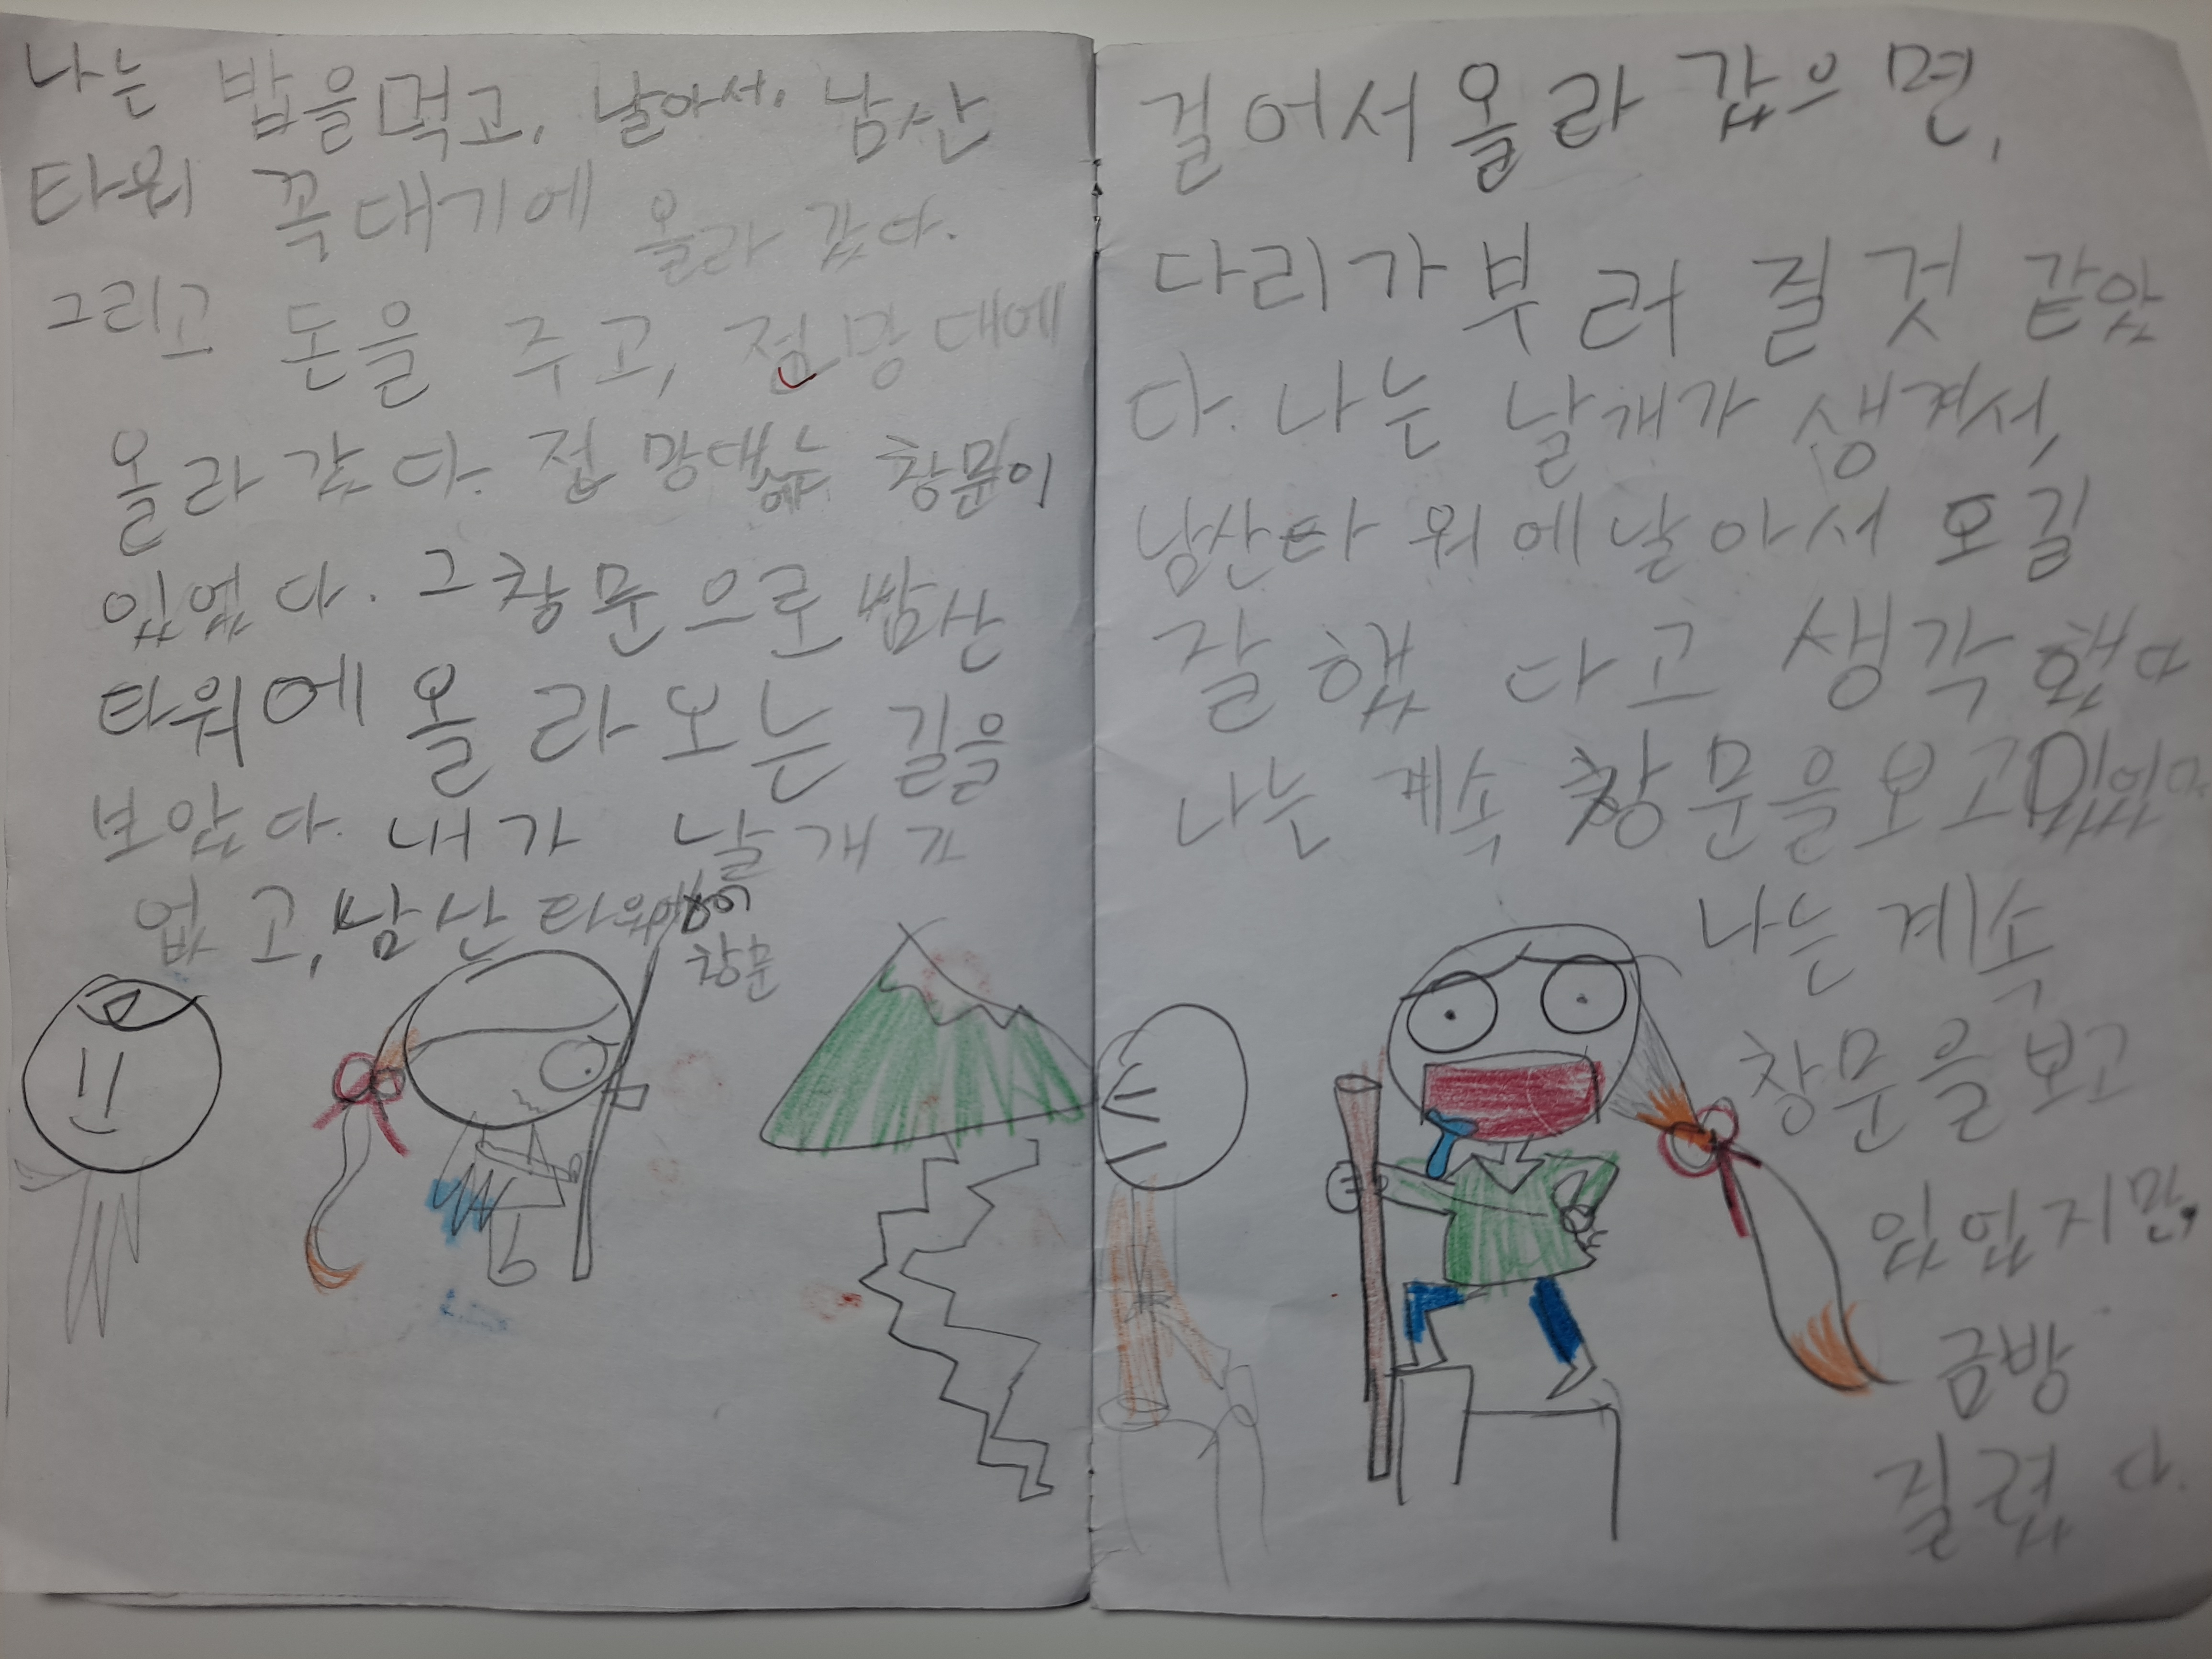 나는 밥을 먹고, 날아서, 남산
타워 꼭대기에 올라 갔다.
그리고 돈을 주고, 전망대에
올라 갔다. 전망대에는 창문이
있었다. 그 창문으로 남산
타워에 올라오는 길을
보았다. 내가 날개가
없고, 남산타워에
창문
걸어서 올라 갔으면,
다리가 부러 질 것 같았
다. 나는 날개가 생겨서,
남산타워에 날아서 오길
잘 했다고 생각했다
나는 계속 창문을 보고 있었다.
나는 계속
창문을 보고
있었지만,
금방
질렸다.